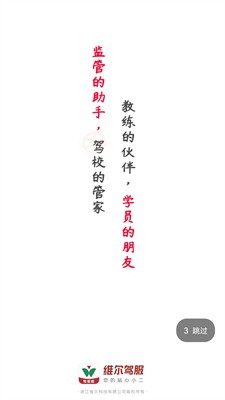 监管的助手，驾校的管家
教练的伙伴，学员的朋友
3 跳过
维尔驾服
您的贴心小二
浙江维尔科技有限公司版权所有